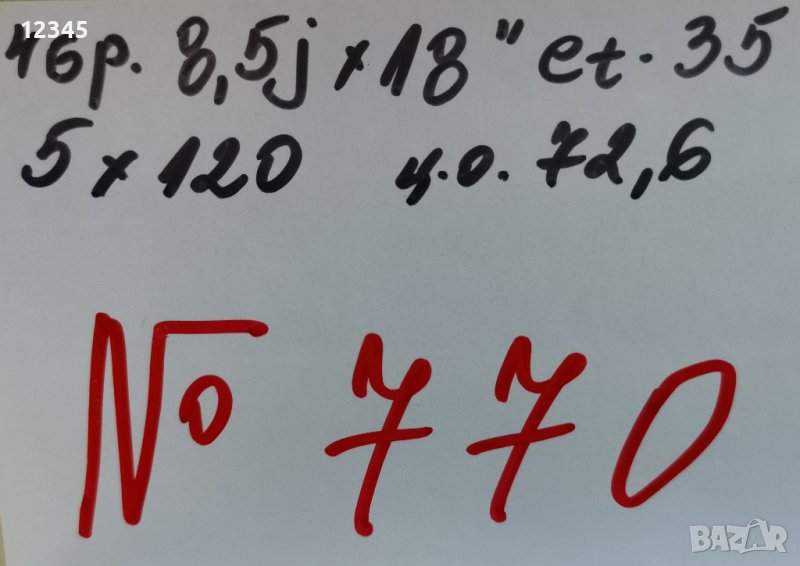 12345
4бр. 8,5j x 18" et. 35
5 x 120 ц.о. 72,6
№ 770
BAZAR